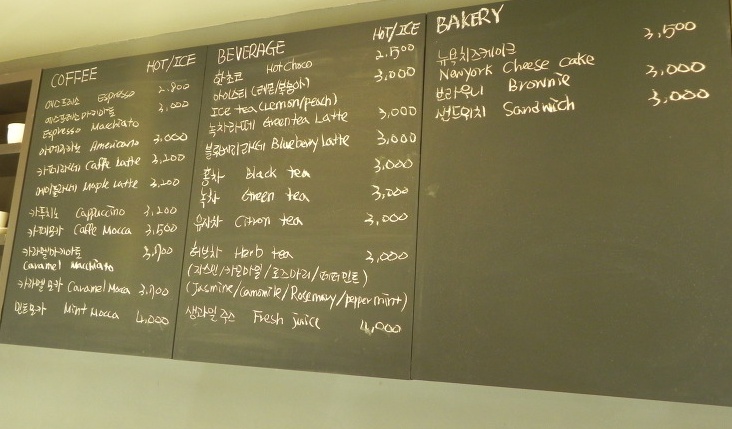 COFFEE HOT/ICE
에스프레소 Espresso 2,800
에스프레소마키아또 3,000
Espresso Macchiato
아메리카노 Americano 3,000
카페라떼 Caffe Latte 3,200
메이플라떼 Maple Latte 3,200
카푸치노 Cappuccino 3,200
카페모카 Caffe Mocca 3,500
카라멜마키아또 3,700
Caramel Macchiato
카라멜모카 Caramel Mocca 3,700
민트모카 Mint Mocca 4,000
BEVERAGE HOT/ICE
핫초코 Hot Choco 2,500
아이스티(레몬/복숭아) 3,000
Ice tea (Lemon/peach)
녹차라떼 Greentea Latte 3,000
블루베리라떼 Blueberry Latte 3,000
홍차 Black tea 3,000
녹차 Green tea 3,000
유자차 Citron tea 3,000
허브차 Herb tea 3,000
(자스민/카모마일/로즈마리/페퍼민트)
(Jasmine/camomile/Rosemary/peppermint)
생과일주스 Fresh juice 4,000
BAKERY
뉴욕치즈케이크 3,500
Newyork Cheese cake
브라우니 Brownie 3,000
샌드위치 Sandwich 3,000